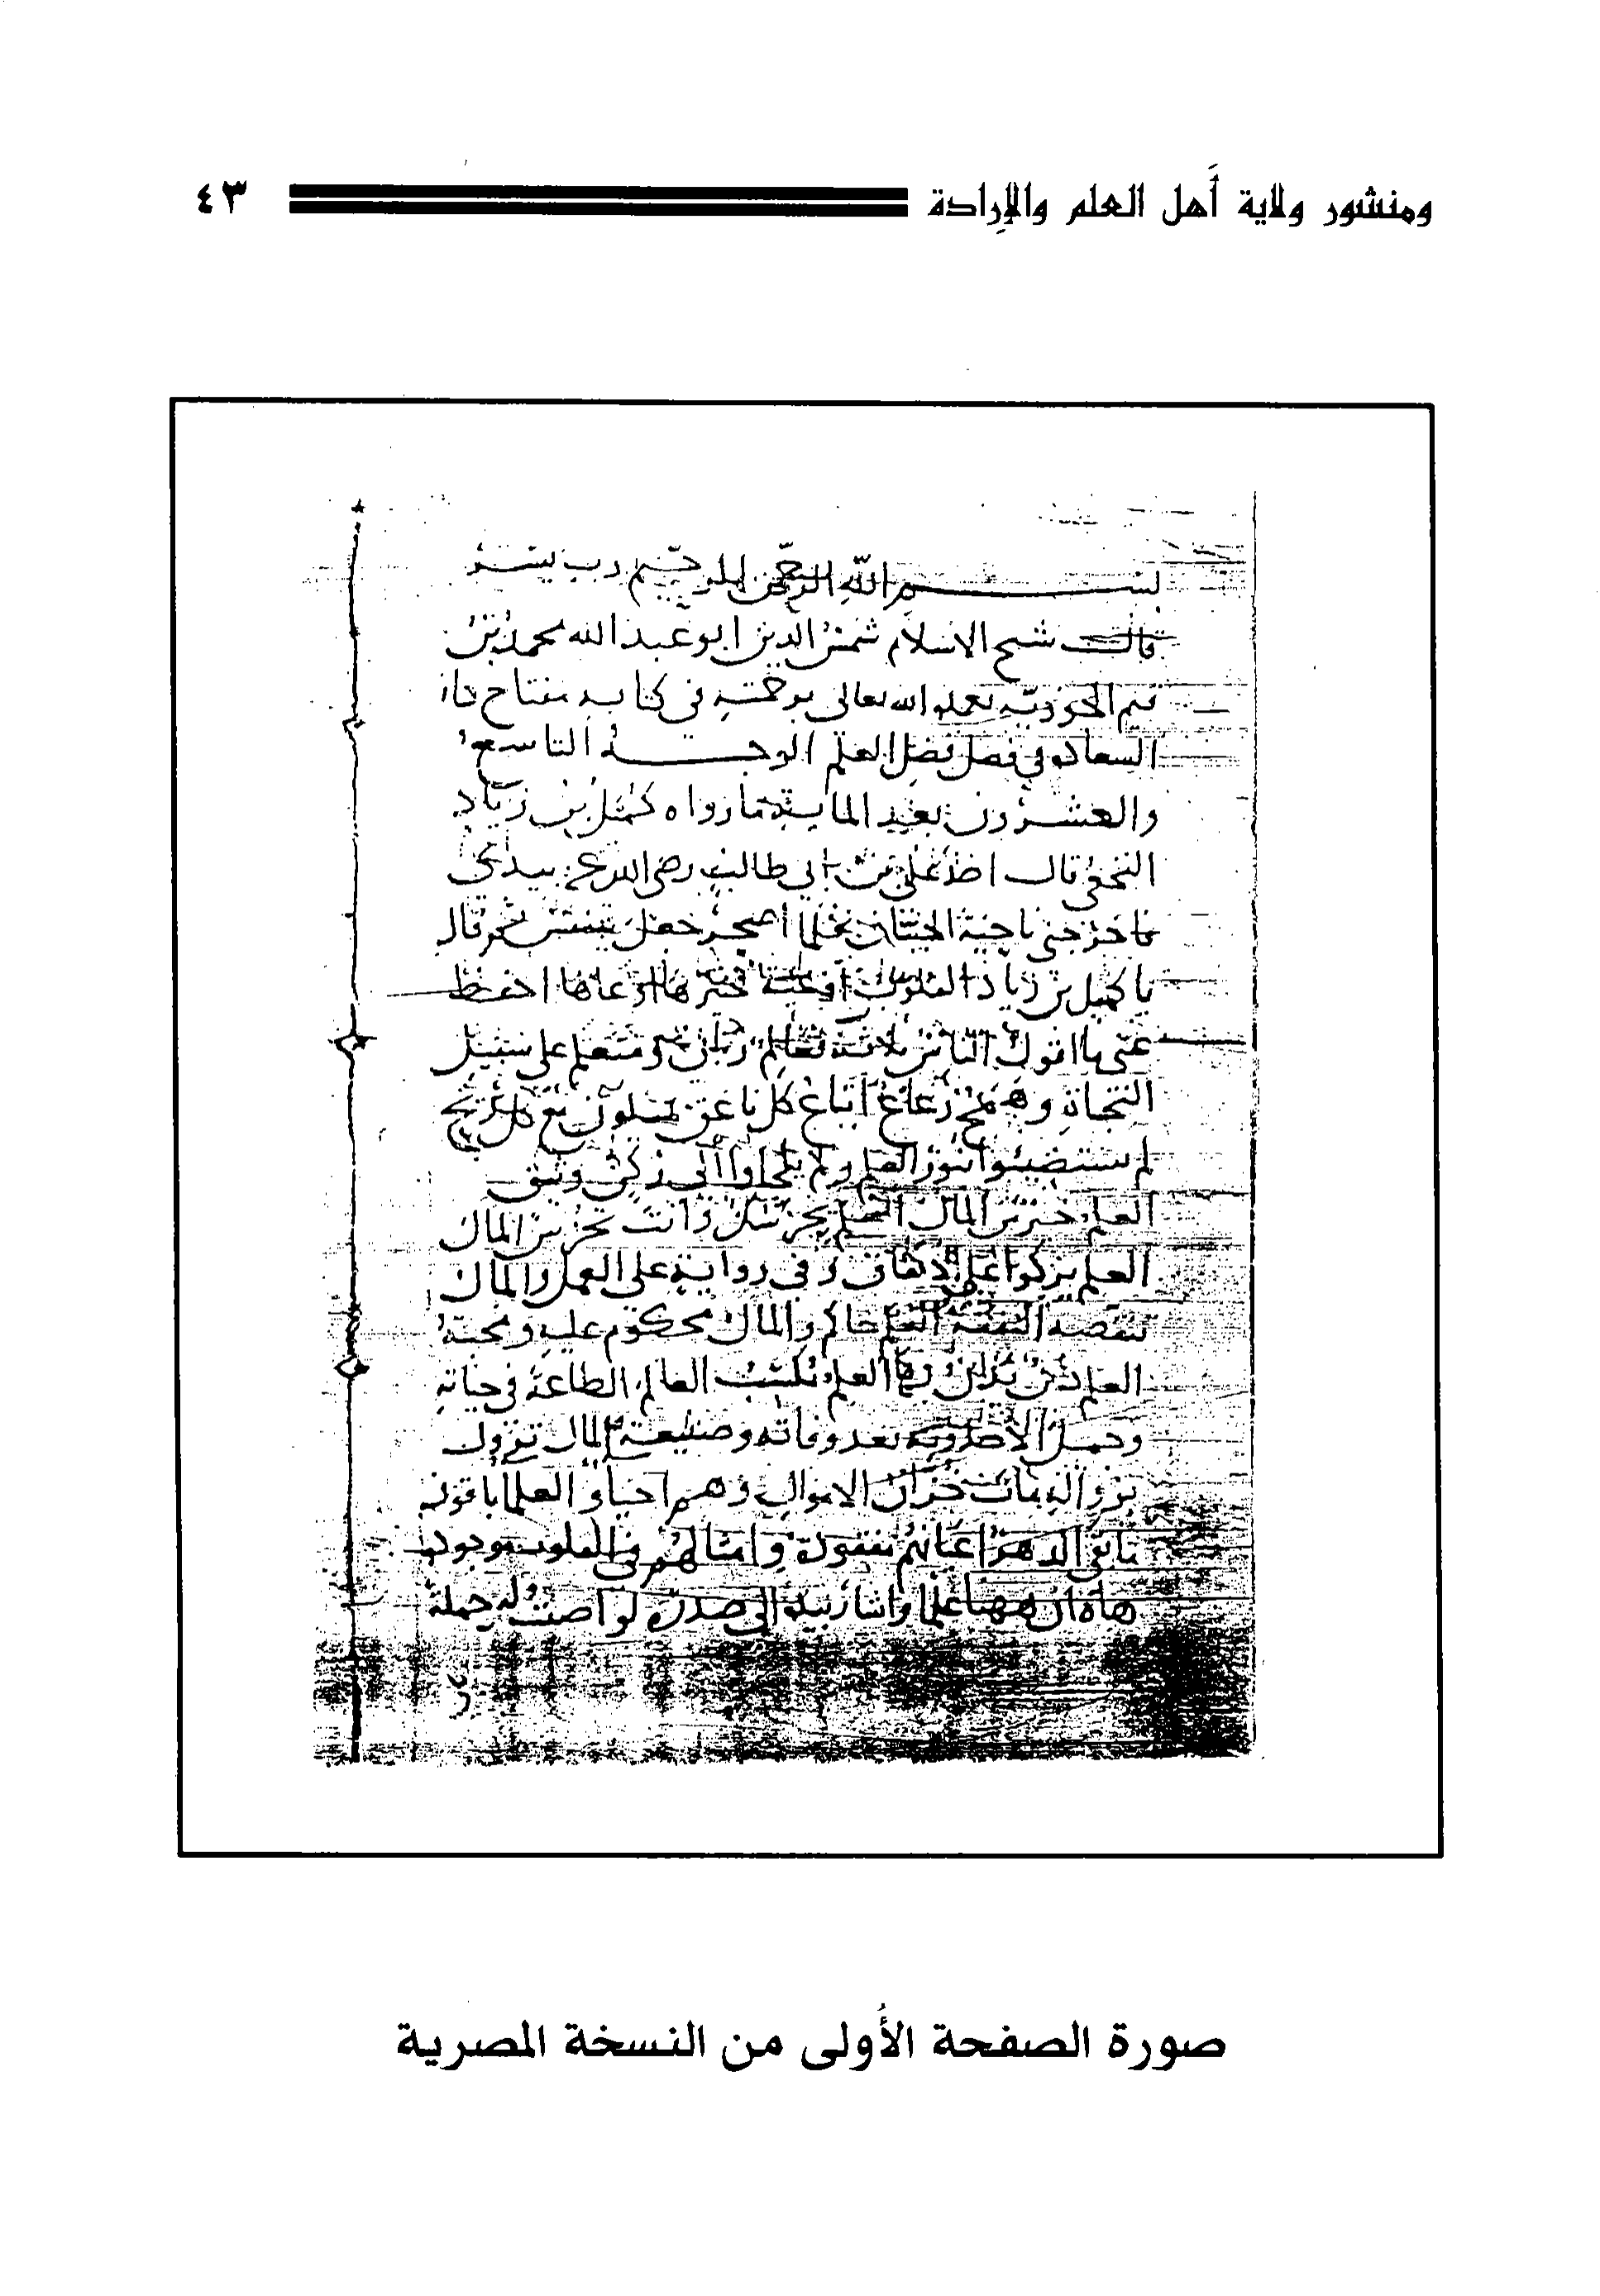 ومنشور ولاية أهل العلم والإرادة ٤٣
بسم الله الرحمن الرحيم رب يسر
قال شيخ الاسلام شمس الدين ابو عبد الله محمد بن
قيم الجوزية تغمده الله تعالى برحمته في كتابه مفتاح دار
السعادة في فصل فضل العلم الوجه التاسع
والعشرون بعد الماية ما رواه كميل بن زياد
النخعي قال اخذ علي بن ابي طالب رضي الله عنه بيدي
فاخرجني ناحية الجبان فلما اصحر جعل يتنفس ثم قال
يا كميل بن زياد القلوب اوعية فخيرها اوعاها احفظ
عني ما اقول الناس ثلاثة فعالم رباني ومتعلم على سبيل
النجاة وهمج رعاع اتباع كل ناعق يميلون مع كل ريح
لم يستضيئوا بنور العلم ولم يلجاوا الى ركن وثيق
العلم خير من المال العلم يحرسك وانت تحرس المال
العلم يزكوا على الانفاق وفي رواية على العمل والمال
تنقصه النفقة العلم حاكم والمال محكوم عليه ومحبة
العلم دين يدان بها العلم يكسب العالم الطاعة في حياته
وجميل الاحدوثة بعد وفاته وصنيعة المال تزول
بزواله مات خزان الاموال وهم احياء والعلما باقون
ما بقي الدهر اعيانهم مفقودة وامثالهم في القلوب موجودة
هاه ان ههنا علما واشار بيده الى صدره لو اصبت له حملة
صورة الصفحة الأولى من النسخة المصرية